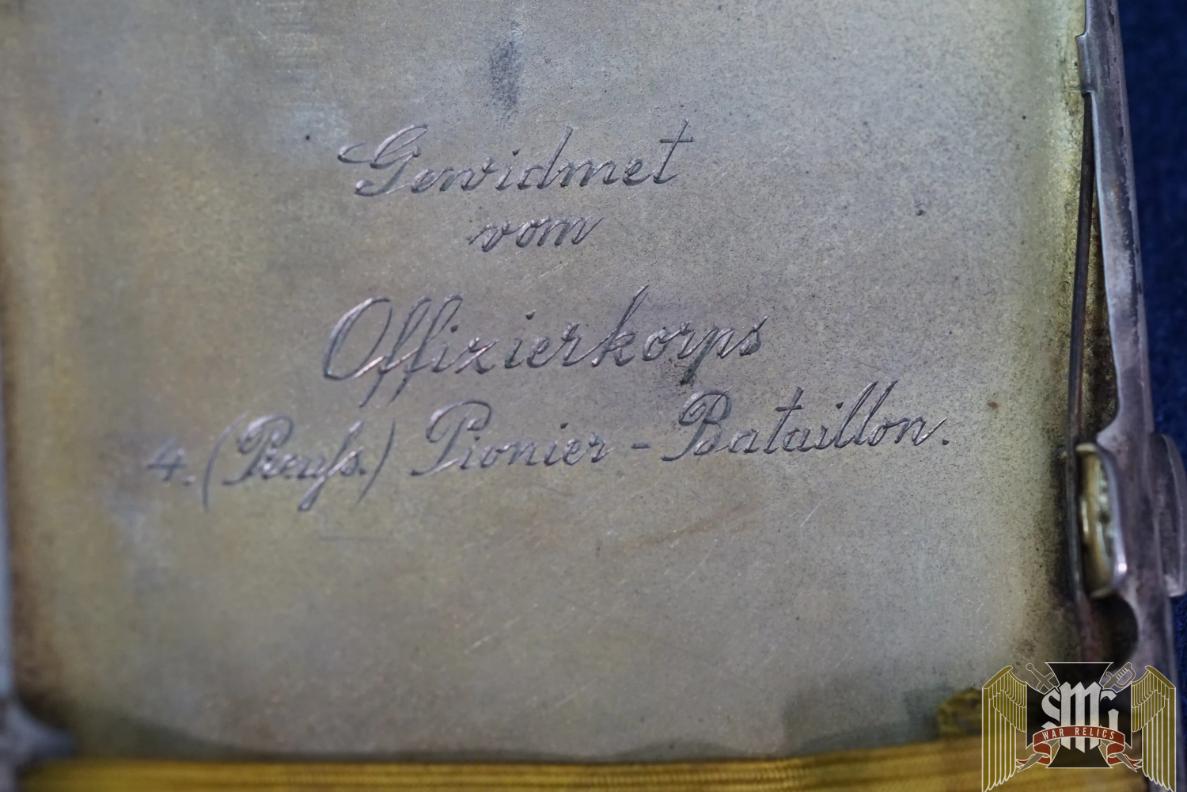 Gewidmet
vom
Offizierkorps
4. (Preuß.) Pionier - Bataillon.
SMG
WAR RELICS